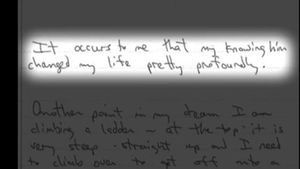 It occurs to me that my knowing him
changed my life pretty profoundly.
Another point in my dream I am
climbing a ladder – at the top it is
very steep – straight up and I need
to climb over to get off into a